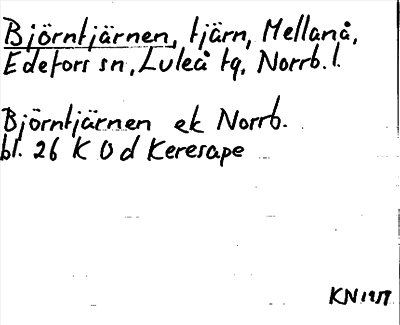 Björntjärnen, tjärn, Mellanå,
Edefors sn, Luleå tg, Norrb. l.
Björntjärnen ek Norrb.
bl. 26 K O d Keresape
KN 1957